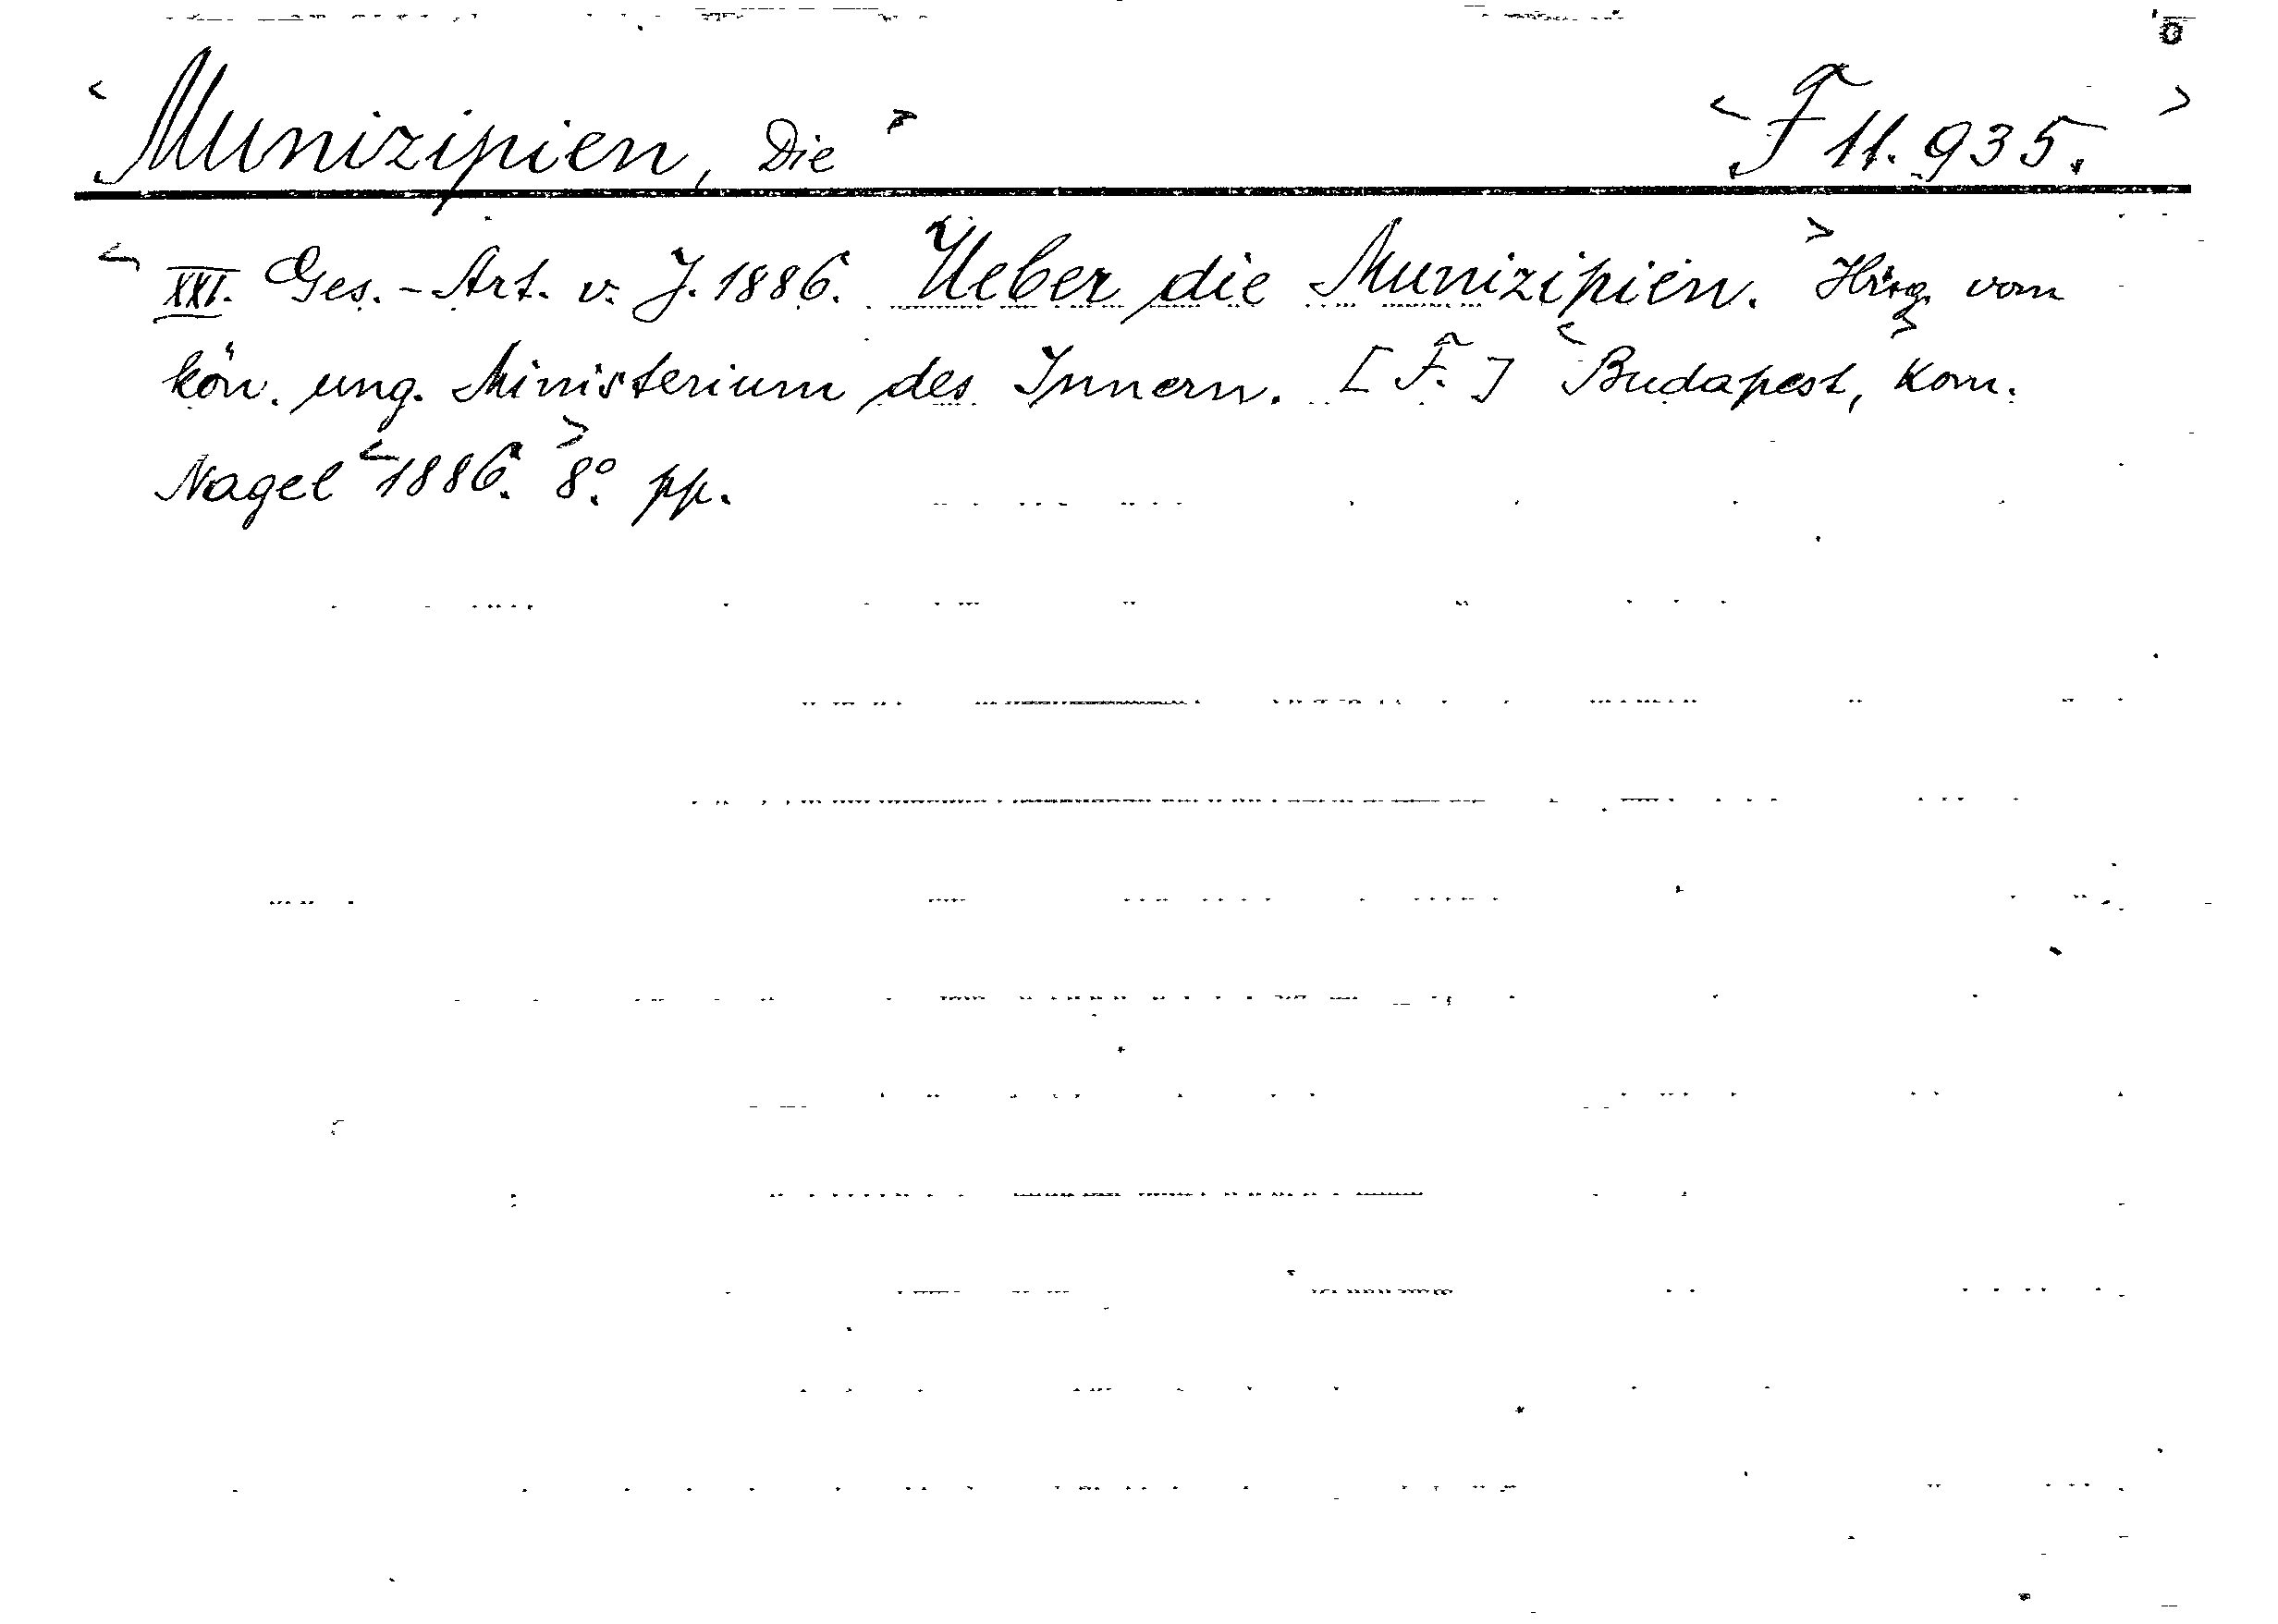 <Munizipien, Die> <F 11.935.>
<XXI. Ges.-Art. v. J. 1886. Ueber die Munizipien.> Hrsg. vom
kön. ung. Ministerium des Innern. [F.] <Budapest,> Kom.
Nagel <1886.> 8º. pp.